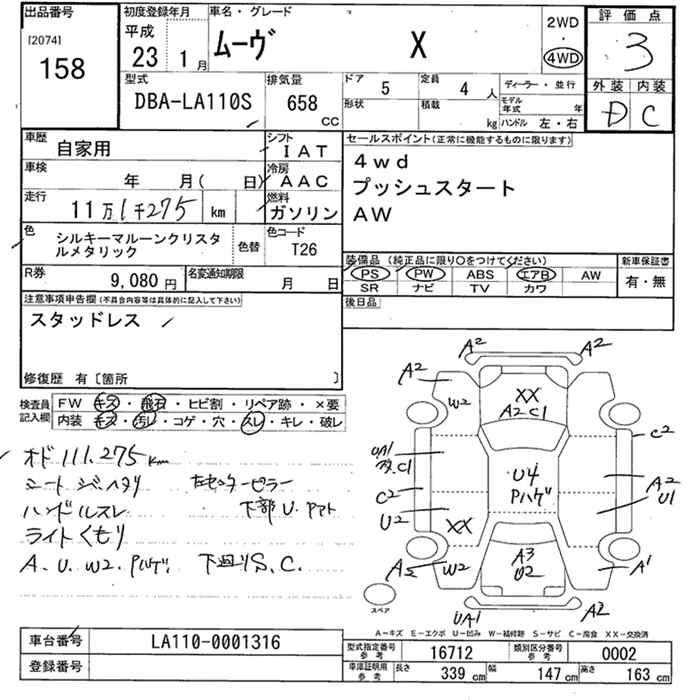 出品番号
[2074]
158
初度登録年月
平成
23 1月
車名・グレード
ムーヴ X
2WD
4WD
評価点
3
外装 内装
D C
型式
DBA-LA110S
排気量
658 CC
ドア
5
定員
4 人
形状
積載
kg
ディーラー・並行
モデル年式 年
ハンドル 左・右
車歴
自家用
シフト
IAT
車検
年 月( 日)
冷房
AAC
走行
11万1千275 km
燃料
ガソリン
色
シルキーマルーンクリスタ
ルメタリック
色替
色コード
T26
R券
9,080円
名変通知期限
月 日
セールスポイント(正常に機能するものに限ります)
4wd
プッシュスタート
AW
装備品 (純正品に限り○をつけてください)
PS PW ABS エアB AW
SR ナビ TV カワ
新車保証書
有・無
後日品
注意事項申告欄 (不具合内容等は具体的に記入して下さい)
スタッドレス
修復歴 有 [箇所 ]
検査員
記入欄
FW キズ・飛石・ヒビ割・リペア跡・×要
内装 キズ・汚レ・コゲ・穴・スレ・キレ・破レ
オド111.275km
シートシミヘタリ 左センターピラー
ハンドルスレ 下部U.Pマト
ライトくもり
A.U.W2.Pハゲ 下廻りS.C.
A2 A2
A2
W2
XX
A2C1
UA1
C1
C2
C2
U2
XX
U4
Pハゲ
A2
U1
A2 W2
A3
U2
A1
UA1 A2
スペア
A−キズ E−エクボ U−凹み W−補修跡 S−サビ C−腐食 XX−交換済
車台番号
LA110-0001316
登録番号
型式指定番号
参考
16712
類別区分番号
参考
0002
車庫証明用
参考
長さ 339 cm
幅 147 cm
高さ 163 cm